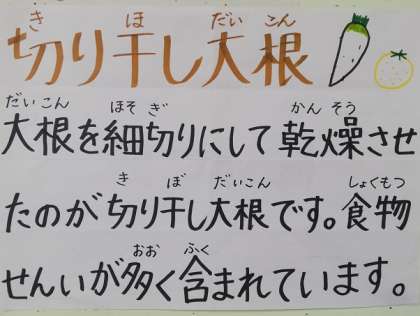 き ほ だい こん
切り干し大根
だいこん ほそ ぎ かん そう
大根を細切りにして乾燥させ
き ぼ だいこん しょくもつ
たのが切り干し大根です。食物
おお ふく
せんいが多く含まれています。